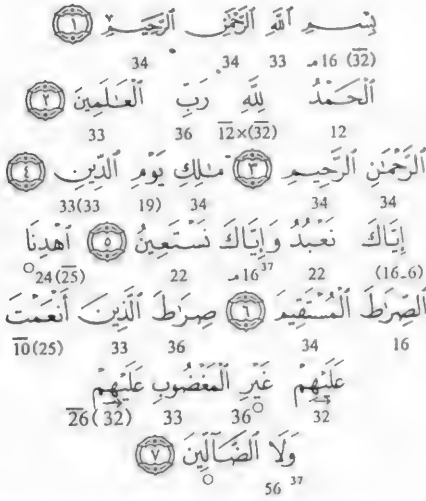 بِسْمِ ٱللَّهِ ٱلرَّحْمَٰنِ ٱلرَّحِيمِ ١
34 34 33 16مـ (32)
ٱلْحَمْدُ لِلَّهِ رَبِّ ٱلْعَٰلَمِينَ ٢
33 36 12×(32) 12
ٱلرَّحْمَٰنِ ٱلرَّحِيمِ ٣ مَٰلِكِ يَوْمِ ٱلدِّينِ ٤
33(33 19) 34 34 34
إِيَّاكَ نَعْبُدُ وَإِيَّاكَ نَسْتَعِينُ ٥ ٱهْدِنَا
24(25) 22 16مـ 37 22 (16-6)
ٱلصِّرَٰطَ ٱلْمُسْتَقِيمَ ٦ صِرَٰطَ ٱلَّذِينَ أَنْعَمْتَ
10(25) 33 36 34 16
عَلَيْهِمْ غَيْرِ ٱلْمَغْضُوبِ عَلَيْهِمْ
26(32) 33 36 32
وَلَا ٱلضَّآلِّينَ ٧
56 37